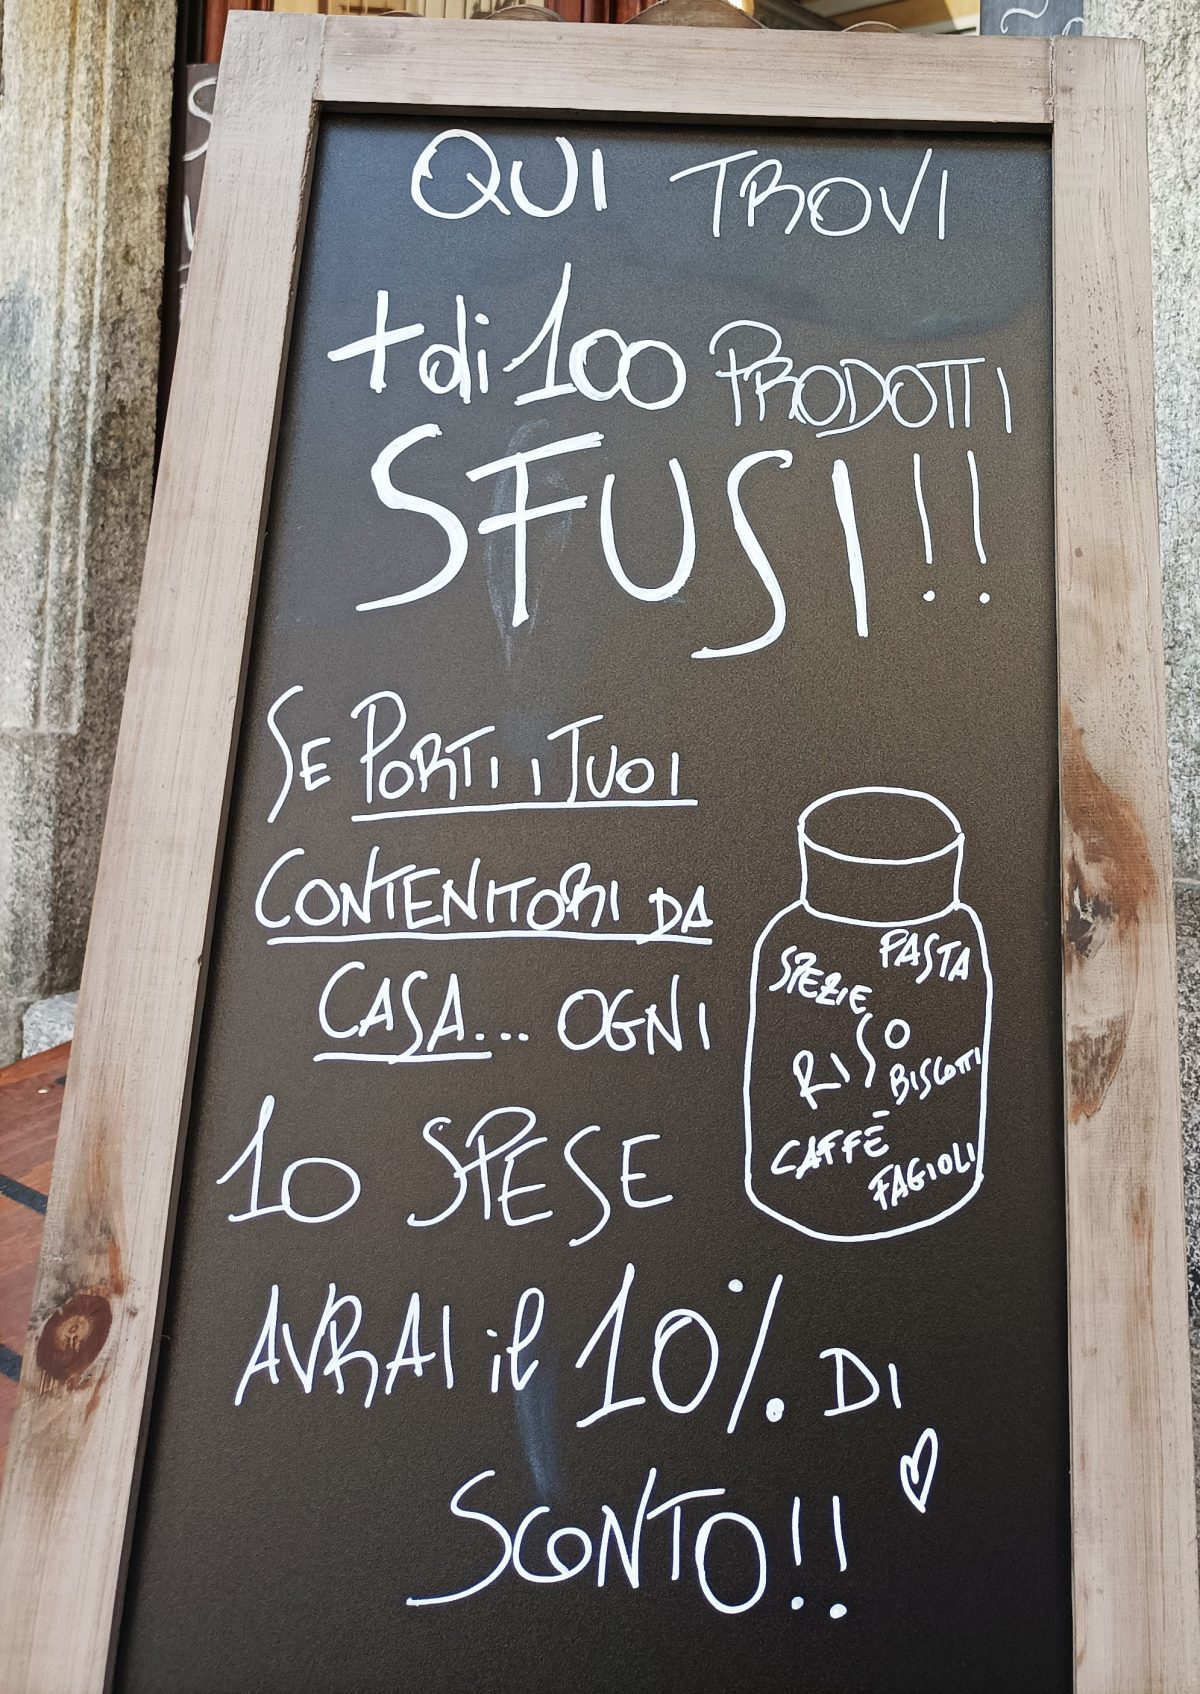 QUI TROVI
+ di 100 PRODOTTI
SFUSI!!
SE PORTI I TUOI
CONTENITORI DA
CASA... OGNI
10 SPESE
AVRAI il 10% DI
SCONTO!!
PASTA
SPEZIE
RISO
BISCOTTI
CAFFÈ
FAGIOLI